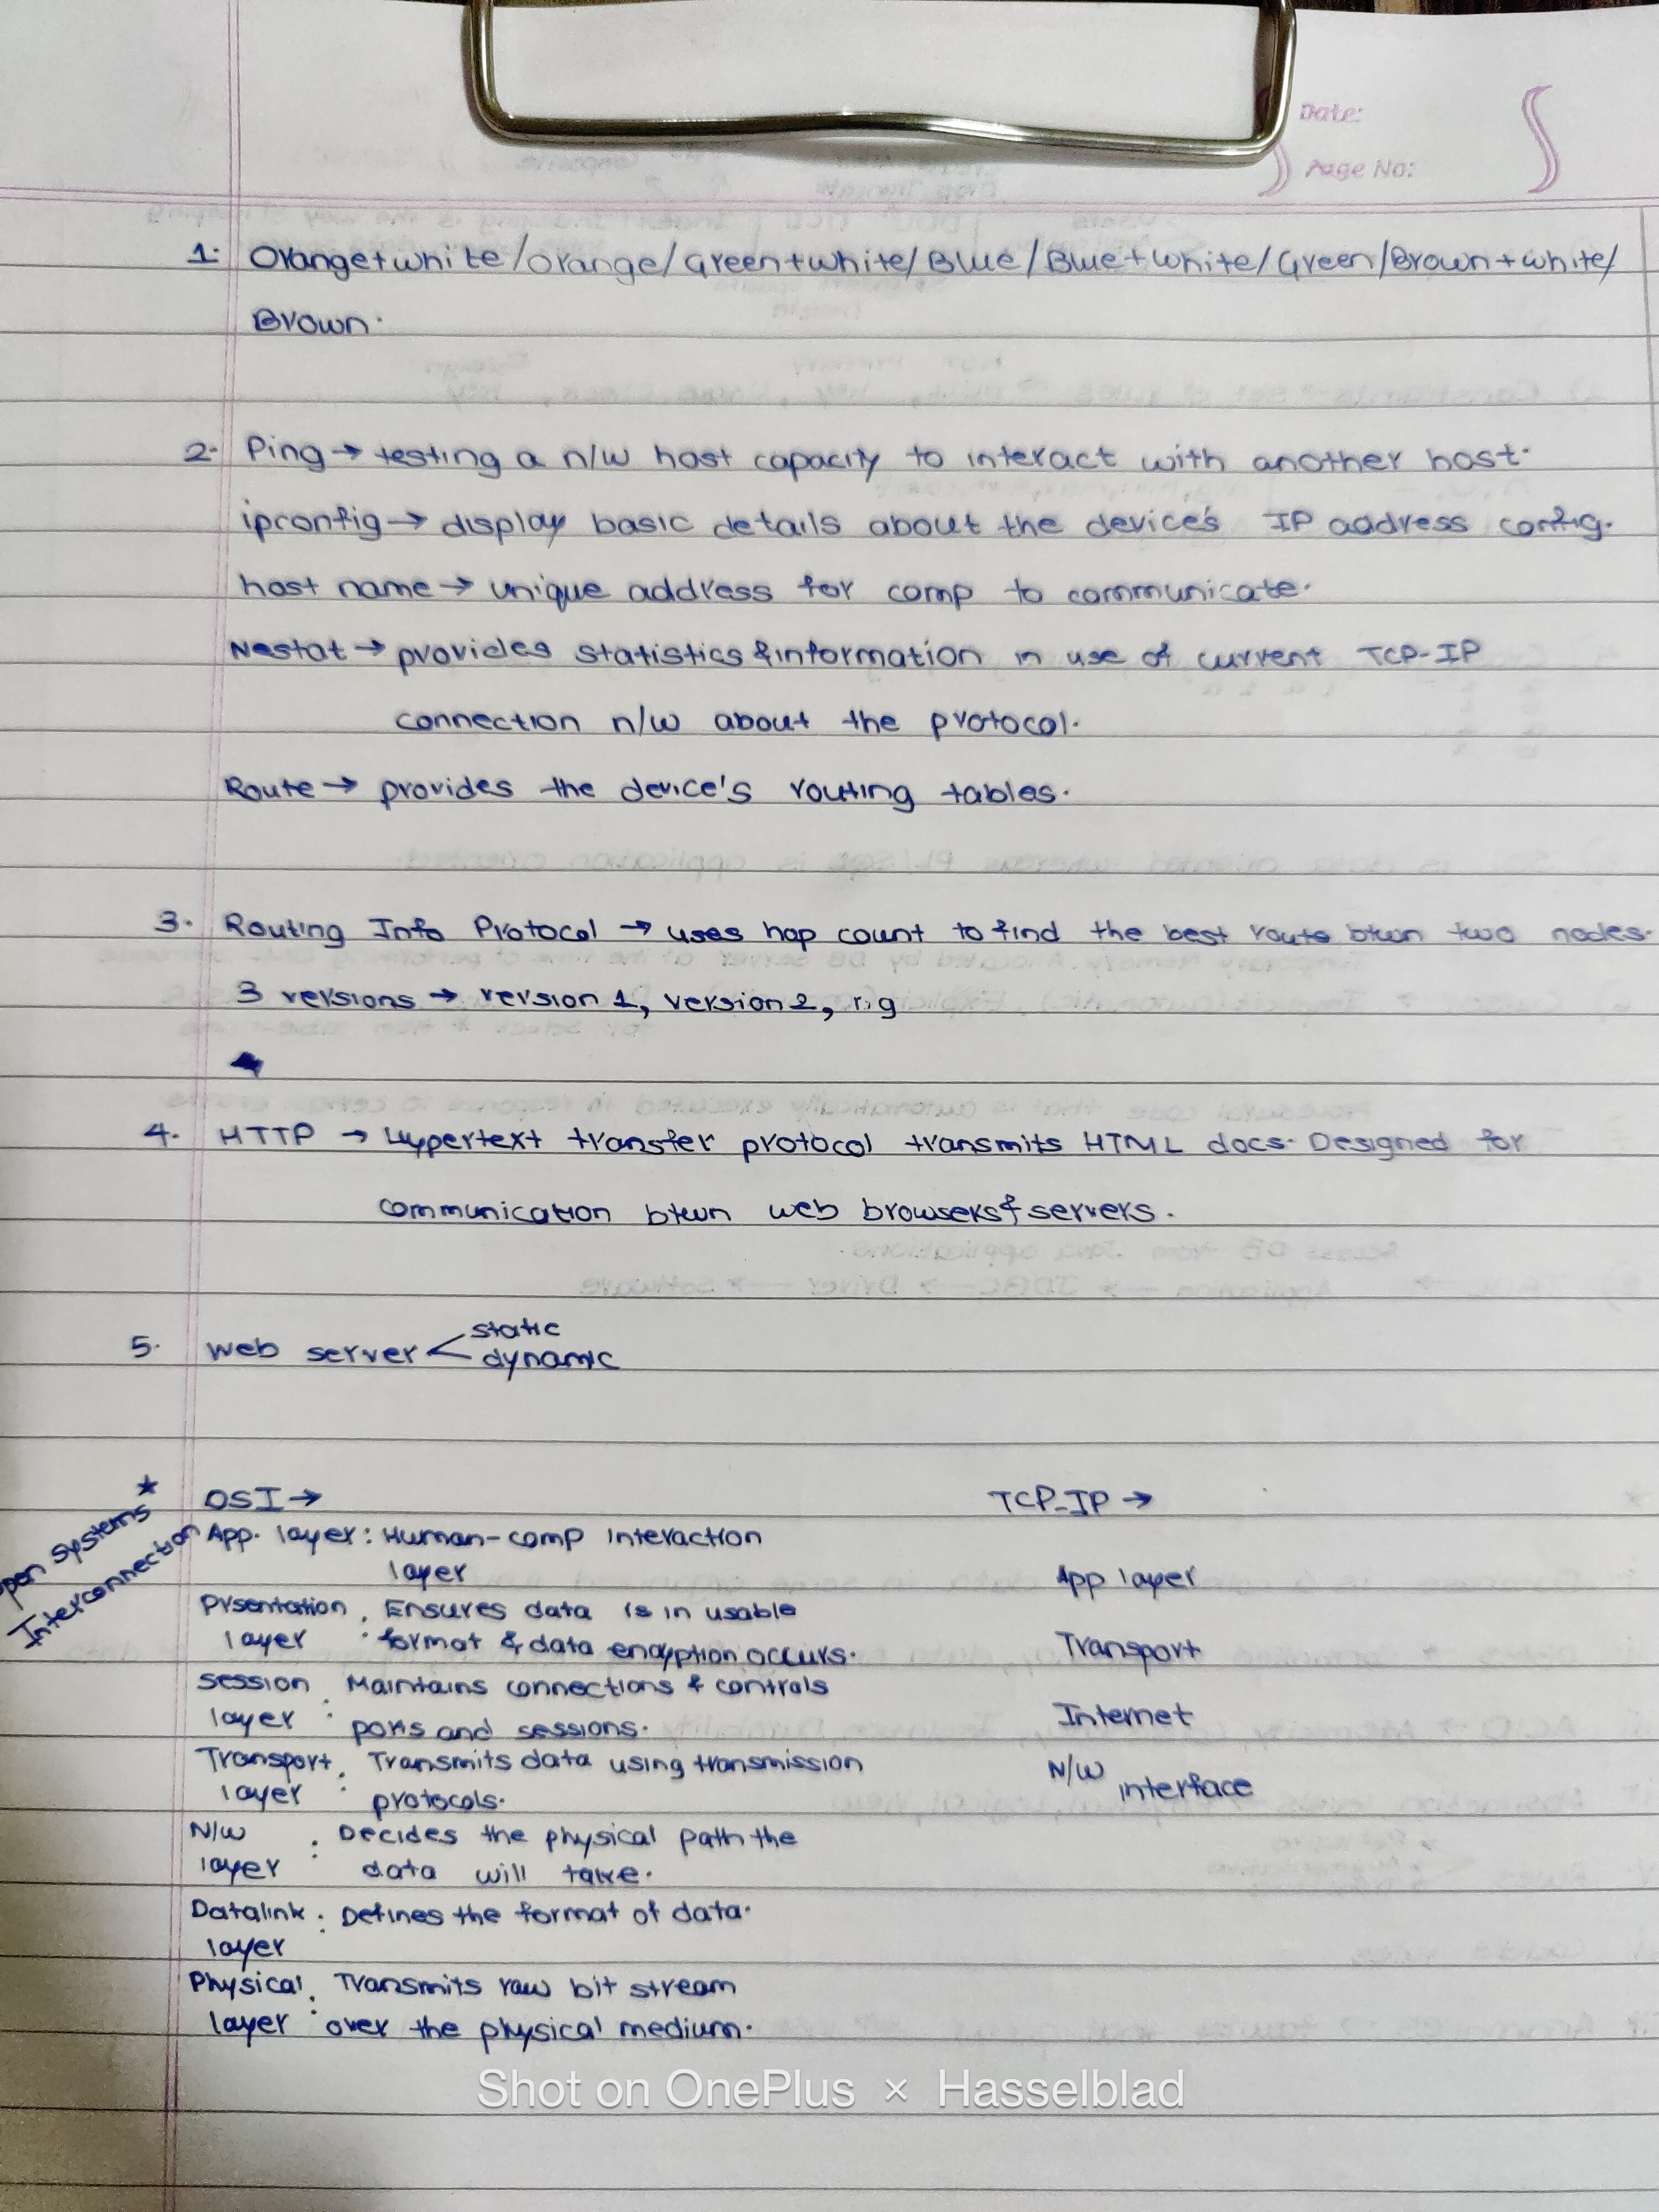 Date:
Page No:
1. Orange+white/orange/Green+white/Blue/Blue+white/Green/Brown+white/
Brown.
2. Ping → testing a n/w host capacity to interact with another host.
ipconfig → display basic details about the device's IP address config.
host name → unique address for comp to communicate.
Nestat → provides statistics & information in use of current TCP-IP
connection n/w about the protocol.
Route → provides the device's routing tables.
3. Routing Info Protocol → uses hop count to find the best route btwn two nodes.
3 versions → version 1, version 2, rig
4. HTTP → Hypertext transfer protocol transmits HTML docs. Designed for
communication btwn web browsers & servers.
5. Web server < static
dynamic
* OSI → TCP-IP →
pen systems
Interconnection
App. layer : Human-comp interaction
layer App layer
Prsentation : Ensures data is in usable
layer format & data encryption occurs. Transport
Session : Maintains connections & controls
layer ports and sessions. Internet
Transport : Transmits data using transmission
layer protocols. N/W interface
N/W : Decides the physical path the
layer data will take.
Datalink : Defines the format of data.
layer
Physical : Transmits raw bit stream
layer over the physical medium.
Shot on OnePlus × Hasselblad